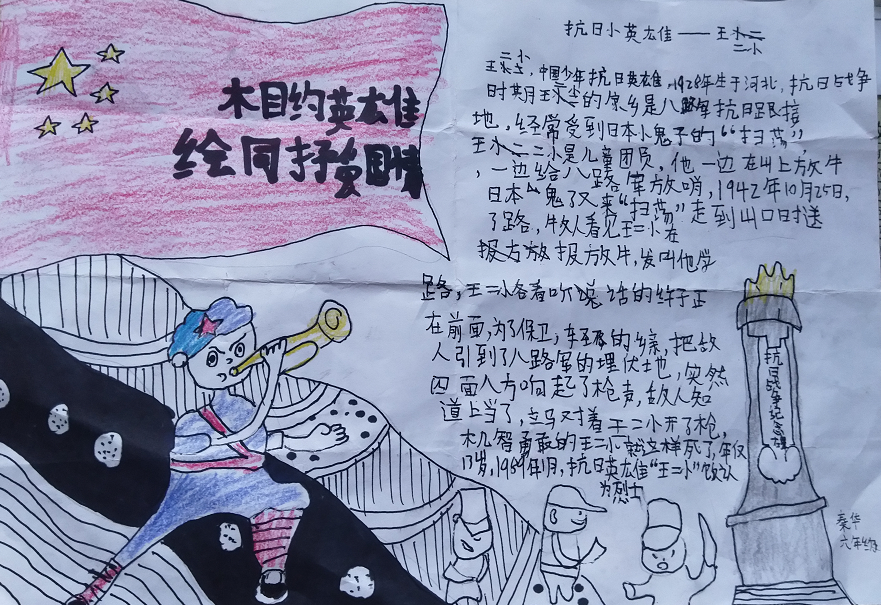 相约英雄
绘同抒贺国情
抗日小英雄——王二小
王二小,中国少年抗日英雄,1928年生于河北,抗日战争
时期王二小的家乡是八路军抗日跟据
地,经常受到日本小鬼子的“扫荡”,
王二小是儿童团员,他一边在山上放牛
,一边给八路军放哨,1942年10月25日,
日本小鬼子又来“扫荡”走到山口时迷
了路,敌人看见王二小在
放牛,发叫他带
路,王二小各着听说话的样子正
在前面,为了保卫,的乡亲,把敌
人引到了八路军的埋伏地,突然
四面八方响起了枪声,敌人知
道上当了,立马对着王二小开了枪,
机智勇敢的王二小就这样死了,年仅
13岁,抗日英雄“王二小”被认
为烈士
抗日战争纪念碑
秦华
六年级